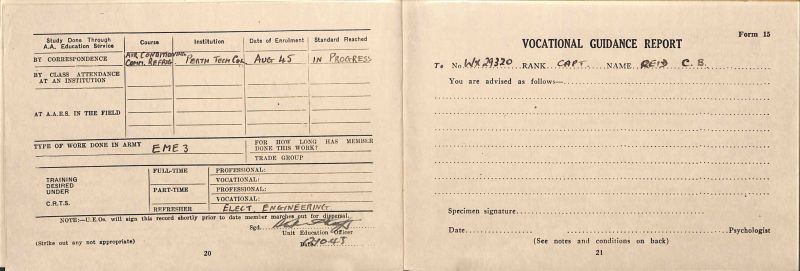 Study Done Through A.A. Education Service
Course
Institution
Date of Enrolment
Standard Reached
BY CORRESPONDENCE
AIR CONDITIONING
COMM. REFRIG.
PERTH TECH COL
AUG 45
IN PROGRESS
BY CLASS ATTENDANCE AT AN INSTITUTION
AT A.A.E.S. IN THE FIELD
TYPE OF WORK DONE IN ARMY
EME 3
FOR HOW LONG HAS MEMBER DONE THIS WORK?
TRADE GROUP
TRAINING DESIRED UNDER C.R.T.S.
FULL-TIME
PROFESSIONAL:
VOCATIONAL:
PART-TIME
PROFESSIONAL:
VOCATIONAL:
REFRESHER
ELECT ENGINEERING
NOTE:—U.E.Os. will sign this record shortly prior to date member marches out for dispersal.
Sgd.
Unit Education Officer
Date
(Strike out any not appropriate)
20
Form 15
VOCATIONAL GUIDANCE REPORT
To No. WX29320 RANK CAPT. NAME REID C. B.
You are advised as follows—
Specimen signature
Date
Psychologist
(See notes and conditions on back)
21